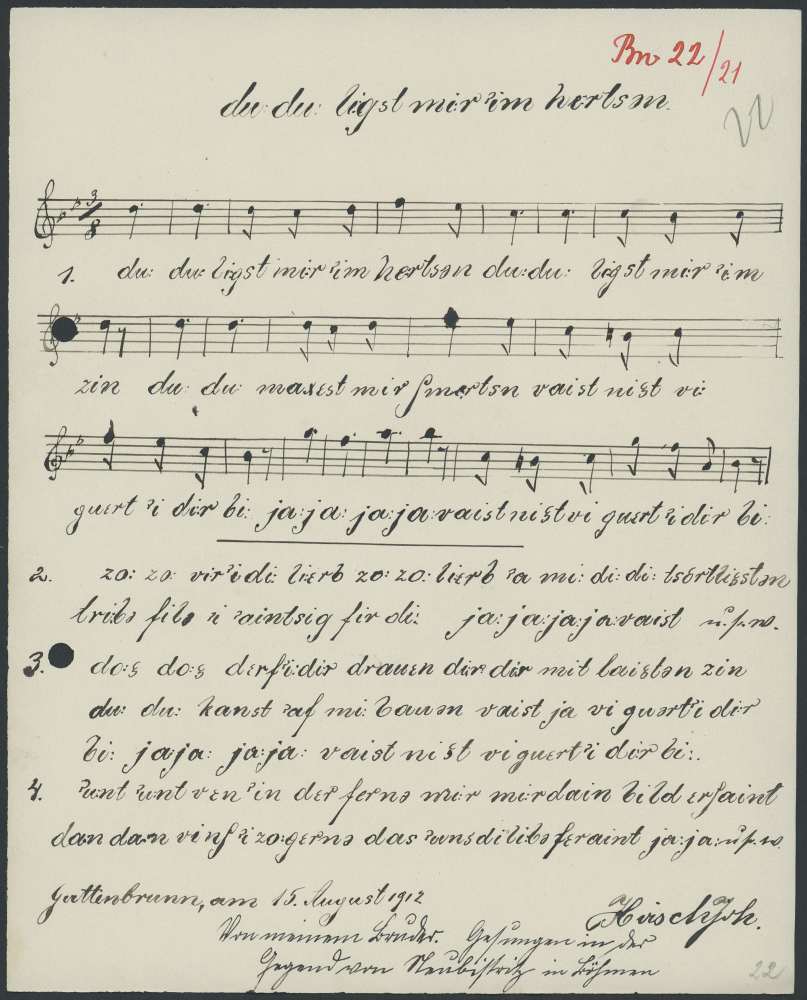 Bn 22/21
22
du: du: ligst mir ʾim hertsm.
3/8
1. du: du: ligst mir ʾim hertsən du: du: ligst mir ʾim
zin du: du: maxɛst mir ʃmertsn vaist niʒt vi:
guɛrt ʾi dir bi: ja: ja: ja: ja: vaist niʒt vi guɛrt ʾi dir bi:
2. zo: zo: vir ʾi di: liɛb zo: zo: liɛb ʾa mi: di: di: tsörtliʒstən
tribə filə ʾi ʾaintsig fir di: ja: ja: ja: ja: vaist u.s.w.
3. do:ʒ do:ʒ derf ʾi: dir drauɛn dir dir mit laiʒtən zin
du: du: kanst ʾaf mi: bauən vaist ja vi guərt ʾi dir
bi: ja: ja: ja: ja: vaist niʒt vi guɛrt ʾi dir bi:.
4. ʾunt ʾunt vɛn ʾin dɛr fernə mir mir dain bild erʃaint
dan dan vinʃ ʾi zo: gernə das ʾuns di libə fɛraint ja: ja: u.s.w.
Gattenbrunn, am 15. August 1912
Hirsch Joh.
Von meinem Bruder. Gesungen in der
Gegend von Neubistritz in Böhmen
22